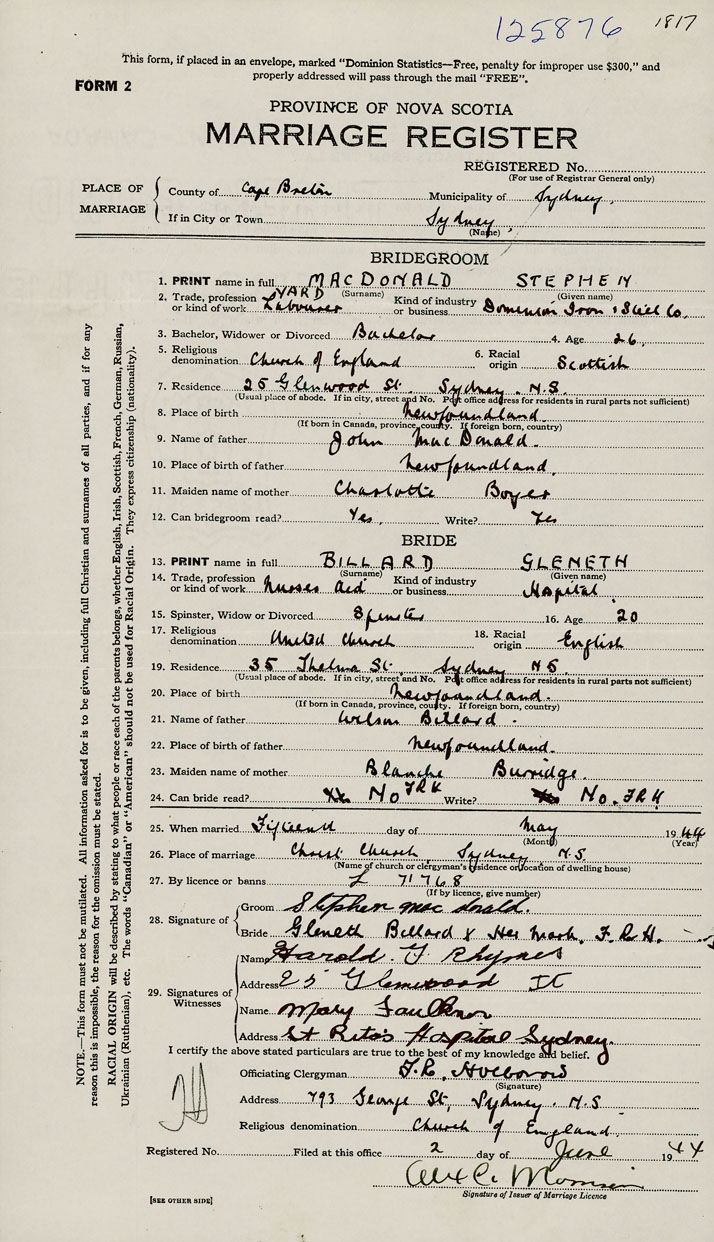 125876 1817
This form, if placed in an envelope, marked "Dominion Statistics—Free, penalty for improper use $300," and
properly addressed will pass through the mail "FREE".
FORM 2
PROVINCE OF NOVA SCOTIA
MARRIAGE REGISTER
REGISTERED No.
(For use of Registrar General only)
PLACE OF MARRIAGE
County of Cape Breton Municipality of Sydney
If in City or Town Sydney
(Name)
BRIDEGROOM
1. PRINT name in full MACDONALD STEPHEN
(Surname) (Given name)
2. Trade, profession or kind of work YARD Labourer Kind of industry or business Dominion Iron & Steel Co.
3. Bachelor, Widower or Divorced Bachelor 4. Age 26
5. Religious denomination Church of England 6. Racial origin Scottish
7. Residence 25 Glenwood St. Sydney. N.S.
(Usual place of abode. If in city, street and No. Post office address for residents in rural parts not sufficient)
8. Place of birth Newfoundland
(If born in Canada, province, county. If foreign born, country)
9. Name of father John MacDonald
10. Place of birth of father Newfoundland
11. Maiden name of mother Charlotte Boyer
12. Can bridegroom read? Yes Write? Yes
BRIDE
13. PRINT name in full BILLARD GLENETH
(Surname) (Given name)
14. Trade, profession or kind of work Nurses Aid Kind of industry or business Hospital
15. Spinster, Widow or Divorced Spinster 16. Age 20
17. Religious denomination United Church 18. Racial origin English
19. Residence 35 Thelma St. Sydney NS
(Usual place of abode. If in city, street and No. Post office address for residents in rural parts not sufficient)
20. Place of birth Newfoundland.
(If born in Canada, province, county. If foreign born, country)
21. Name of father Wilson Billard
22. Place of birth of father Newfoundland.
23. Maiden name of mother Blanche Burridge
24. Can bride read? No FRH Write? No. FRH
25. When married Fifteenth day of May 1944
(Month) (Year)
26. Place of marriage Christ Church Sydney N.S.
(Name of church or clergyman's residence or location of dwelling house)
27. By licence or banns L 71768
(If by licence, give number)
28. Signature of
Groom Stephen MacDonald.
Bride Gleneth Billard x Her Mark. F.R.H.
29. Signatures of Witnesses
Name Harold Rhymes
Address 25 Glenwood St
Name Mary Faulknor
Address St Rita's Hospital Sydney.
I certify the above stated particulars are true to the best of my knowledge and belief.
Officiating Clergyman F.R. Holborow
(Signature)
Address 793 George St., Sydney. N.S
Religious denomination Church of England
Registered No. Filed at this office 2 day of June 1944
Alex C. Morrison
Signature of Issuer of Marriage Licence
[SEE OTHER SIDE]
NOTE.—This form must not be mutilated. All information asked for is to be given, including full Christian and surnames of all parties, and if for any
reason this is impossible, the reason for the omission must be stated.
RACIAL ORIGIN will be described by stating to what people or race each of the parents belongs, whether English, Irish, Scottish, French, German, Russian,
Ukrainian (Ruthenian), etc. The words "Canadian" or "American" should not be used for Racial Origin. They express citizenship (nationality).